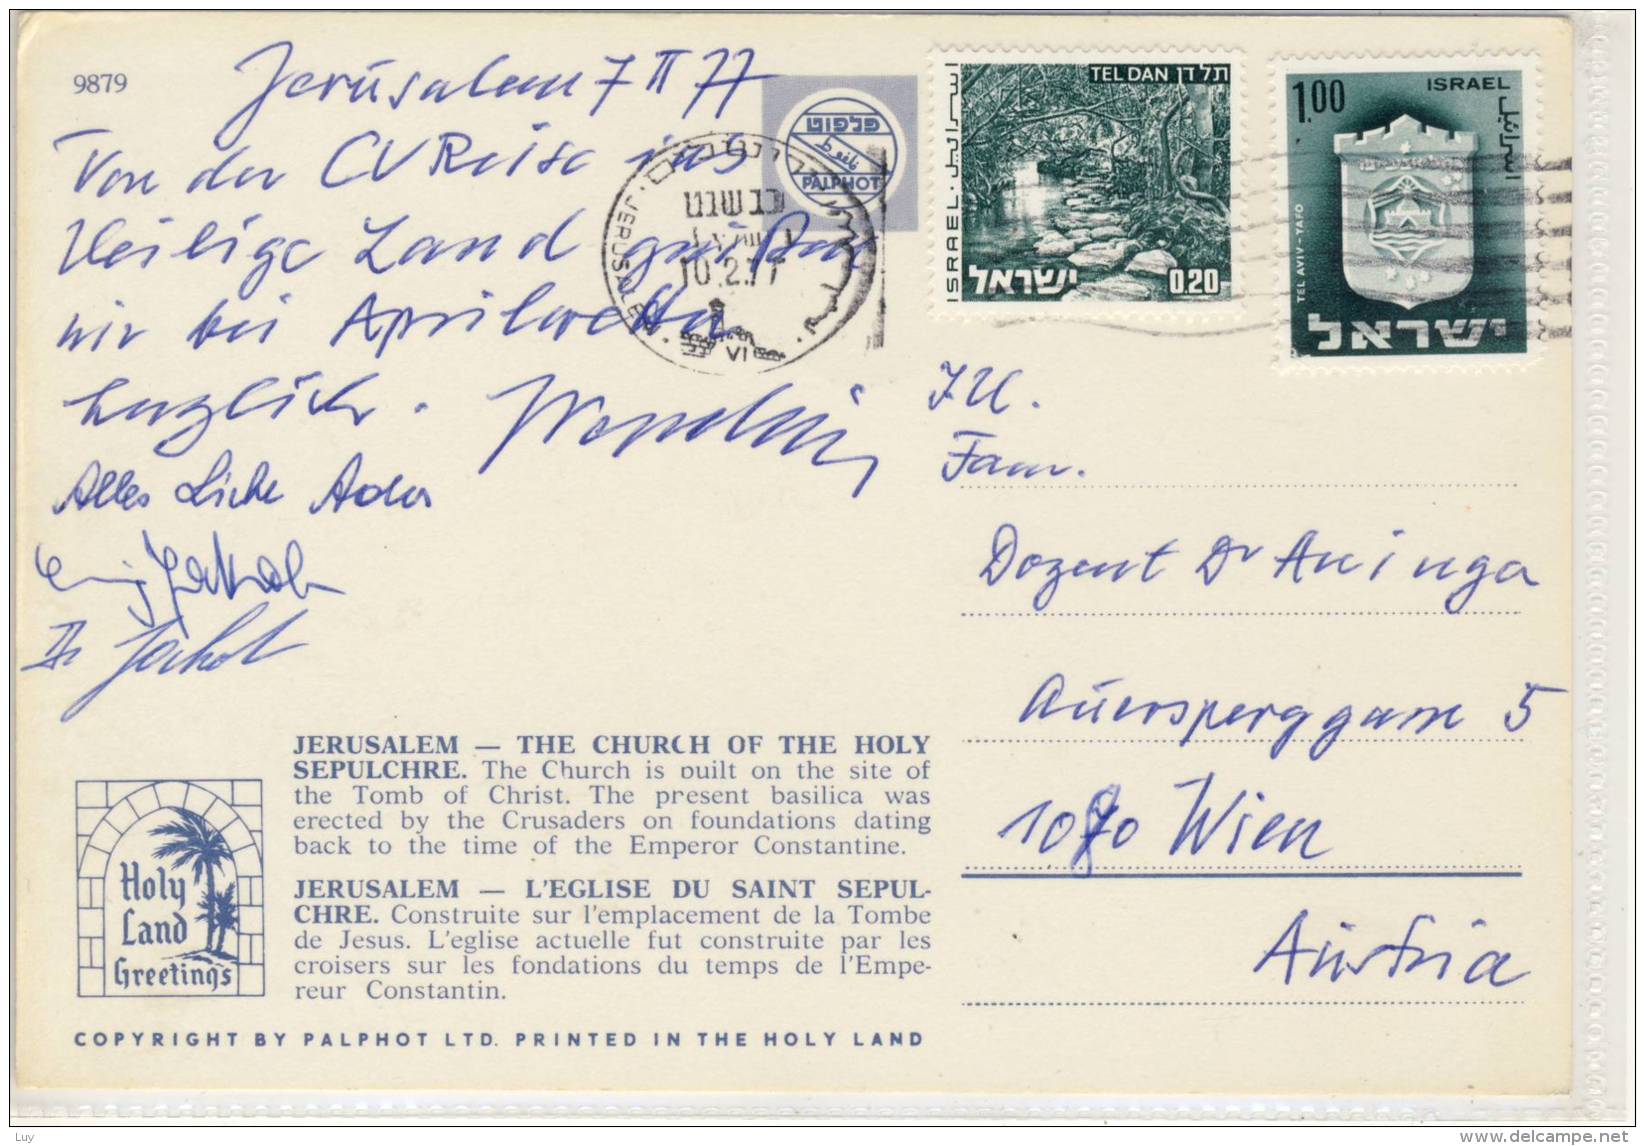 9879
Jerusalem 7 II 77
Von der CV Reise ins
Heilige Land grüßen
wir bei Aprilwetter
herzlich.
Alles Liebe
Jakob
Dr Jakob
פלפוט
PALPHOT
JERUSALEM
10.2.77
VI
TEL DAN תל דן
اسرائيل
ISRAEL
ישראל
0.20
1.00
ISRAEL
اسرائيل
TEL AVIV - YAFO
ישראל
Fam.
Dozent Dr
Auersperggasse 5
1070 Wien
Austria
JERUSALEM — THE CHURCH OF THE HOLY
SEPULCHRE. The Church is built on the site of
the Tomb of Christ. The present basilica was
erected by the Crusaders on foundations dating
back to the time of the Emperor Constantine.
JERUSALEM — L'EGLISE DU SAINT SEPUL-
CHRE. Construite sur l'emplacement de la Tombe
de Jesus. L'eglise actuelle fut construite par les
croisers sur les fondations du temps de l'Empe-
reur Constantin.
Holy
Land
Greetings
COPYRIGHT BY PALPHOT LTD. PRINTED IN THE HOLY LAND
Luy
www.delcampe.net